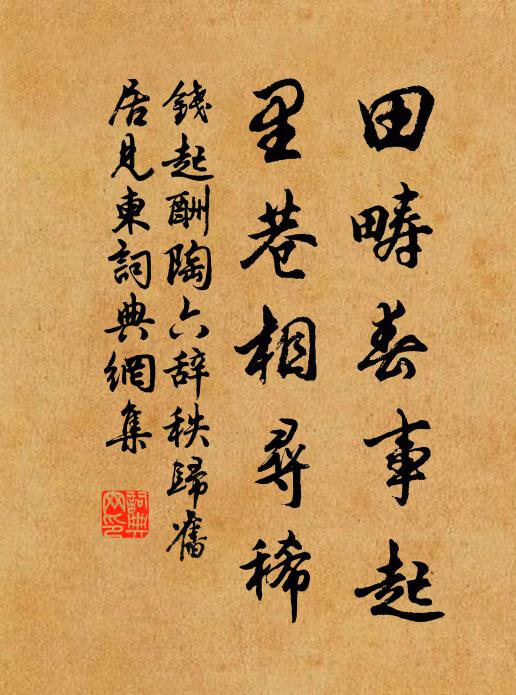 田疇春事起
里巷相尋稀
錢起酬陶六辞秩歸舊
居見柬詞典網集
詞典網印